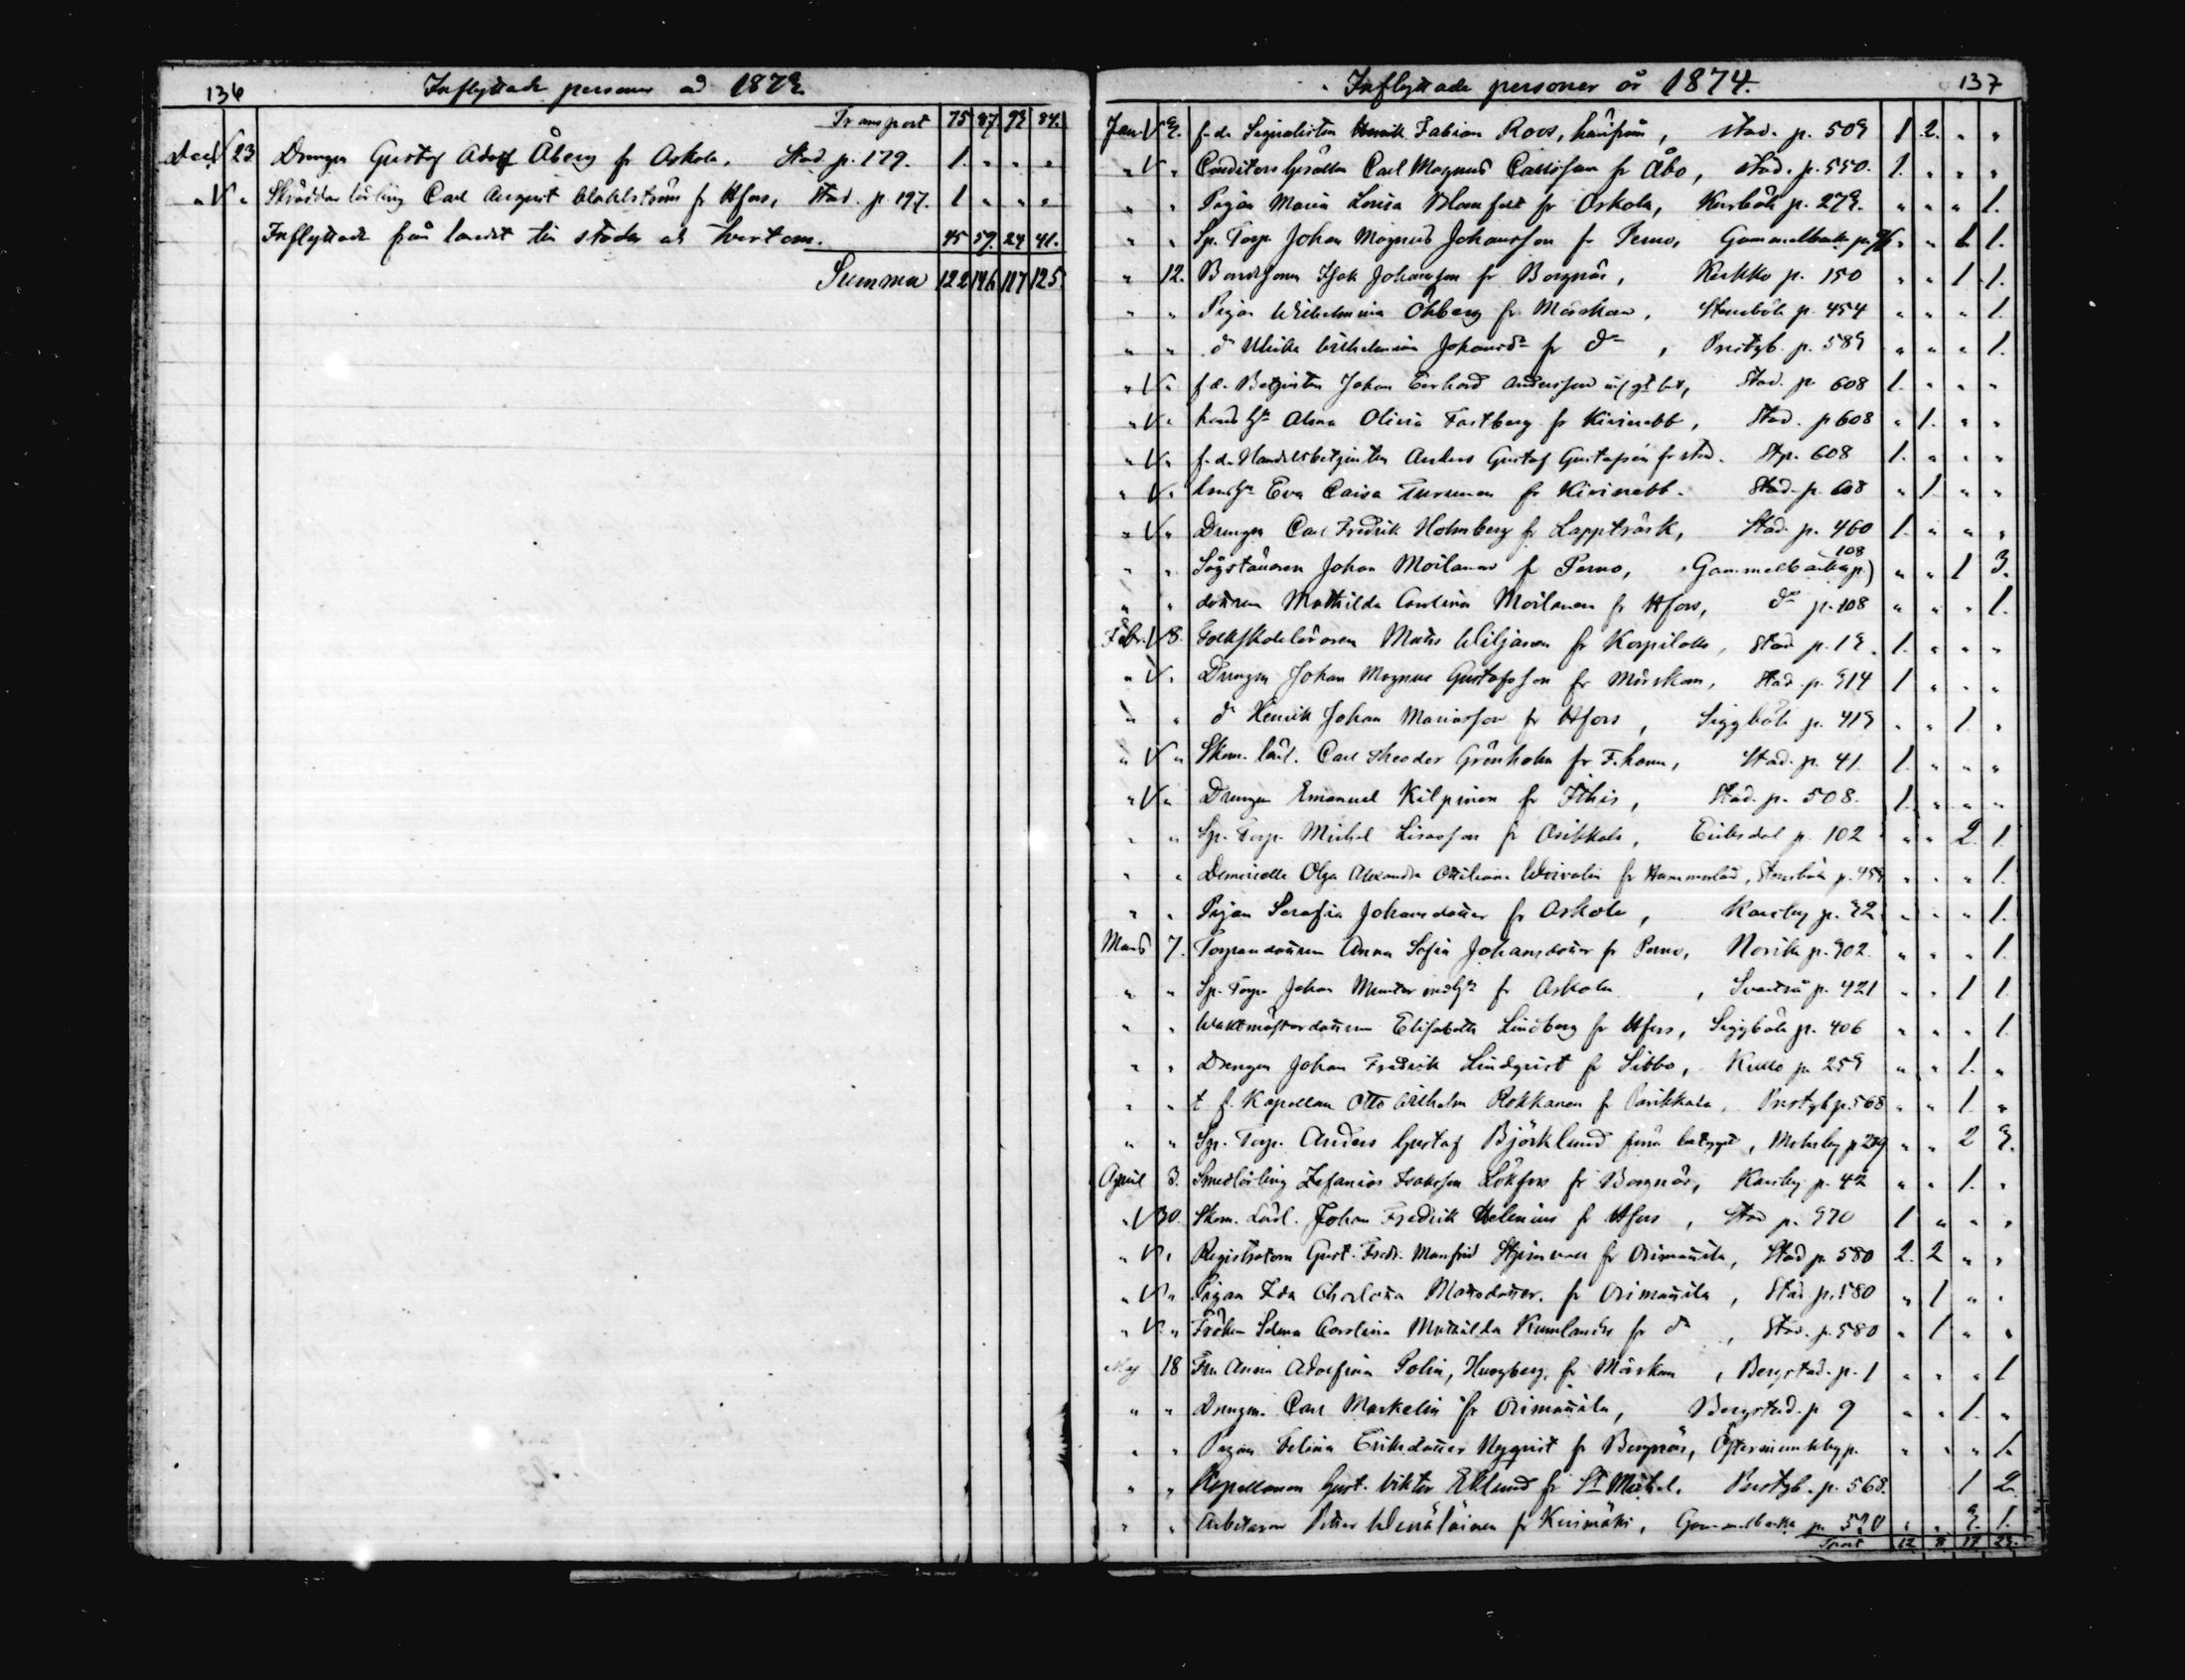 136
Inflyttade personer år 1873.
Transport 75 87. 93 84.
Decb 23 Drengen Gustaf Adolf Åberg fr Askola. Stad. p. 179. 1. " " "
" V " Skräddar lärling Carl August Wahlström fr Hfors, Stad. p. 197. 1 " " "
Inflyttade från landet till staden och tvertom. 45 59. 24 41.
Summa 122 146 117 125.
Inflyttade personer år 1874.
137
Jan. V 3. f. d. Signalisten Henrik Fabian Roos, härifrån, stad. p. 503 1 2. " "
" V " Conditorsgesällen Carl Magnus Carlsson fr Åbo, stad. p. 550. 1. " " "
" " Pigan Maria Lovisa Blomfelt fr Askola, Kurböle p. 273. " " " 1.
" " Sp. Torp. Johan Magnus Johansson fr Perno, Gammelbacka p. 96. " " 1. 1.
" 12. Bondsonen Isak Johansson fr Borgnäs, Kerkko p. 150 " " 1 1.
" " Pigan Wilhelmina Öhberg fr Mörskom, Stensböle p. 454 " " " 1.
" " do Ulrika Wilhelmina Johansdr fr do, Prestgb. p. 583 " " " 1.
" V " f. d. Betjenten Johan Gerhard Andersson Stad. p. 608 1. " " "
" V " hans hu Alma Olivia Fastberg fr Kivinebb, Stad. p 608 " 1. " "
" V " f. d. Handelsbetjenten Anders Gustaf Gustafson fr stad. St p. 608 1. " " "
" V " hans hu Eva Caisa Turunen fr Kivinebb. Stad. p. 608 " 1 " "
" V " Drengen Carl Fredrik Holmberg fr Lappträsk, Stad. p. 460 1. " " "
" " Johan Moilanen fr Perno, Gammelbacka p. 108 " " 1 3.
" " dottren Mathilda Carolina Moilanen fr Hfors, do p. 108 " " " 1.
Febr. V 8. Folkskoleläraren Matts Wiljanen fr Korpilaks, Stad p. 13. 1. " " "
" V " Drengen Johan Magnus Gustafsson fr Mörskom, Stad. p. 314 1 " " "
" " do Henrik Johan Mariasson fr Hfors, Siggböle p. 413 " " 1 "
" V " Skom. lärl. Carl Theodor Grönholm fr F.hamn, Stad. p. 41. 1. " " "
" V " Drengen Emanuel Kilpinen fr Ithis, Stad. p. 508. 1. " " "
" " Sp. Torp. Michel Lisasson fr Asikkala, Eriksdal p. 102 " " 2. 1.
" " Demoiselle Olga Alexandra Ottiliana Weivalin fr Hammarland, Stensböle p. 453 " " " 1.
" " Pigan Serafia Johansdotter fr Askola, Karsby p. 32 " " " 1.
Mars 7. Torparedottren Anna Sofia Johansdotter fr Perno, Norike p. 302. " " " 1.
" " Sp. Torp. Johan Munter med hu fr Askola, Svartså p. 421 " " 1 1.
" " Waktmästardottren Elisabeth Lindberg fr Hfors, Siggböle p. 406 " " " 1.
" " Drengen Johan Fredrik Lindqvist fr Sibbo, Kullo p. 253 " " 1. "
" " t. f. Kapellan Otto Wilhelm Rokkanen fr Parikkala, Prestgb p. 568 " " 1. "
" " Sp. Torp. Anders Gustaf Björklund, Molnby p 289 " " 2 3.
April 3. Smedlärling Zefanias Isaksson Löfors fr Borgnäs, Karsby p. 42 " " 1. "
" V 30. Skom. Lärl. Johan Fredrik Helenius fr Hfors, Stad p. 370 1 " " "
" V " Registratorn Gust. Fredr. Manfrid fr Orimattila, Stad p. 580 2. 2 " "
" V " Pigan Ida Charlotta Mattsdotter fr Orimattila, Stad p. 580 " 1 " "
" V " Fröken Selma Carolina Mathilda Kumlander fr do, Stad. p. 580 " 1 " "
Maj 18 Fru Anna Adolfina Polin, Hungberg, fr Mörskom, Bergstad. p. 1 " " " 1
" " Drengen Carl Markelin fr Orimattila, Bergstad. p 9 " " 1. "
" " Pigan Felina Eriksdotter Nyqvist fr Borgnäs, Östermunkby p. " " " 1.
" " Kapellanen Gust. Viktor Eklund fr St Michel, Prestgb. p. 568. 1 2.
" " Arbetaren Petter Wenäläinen fr Kerimäki, Gammelbacka p. 570 " " 3. 1.
Transp 12 8. 17 23.